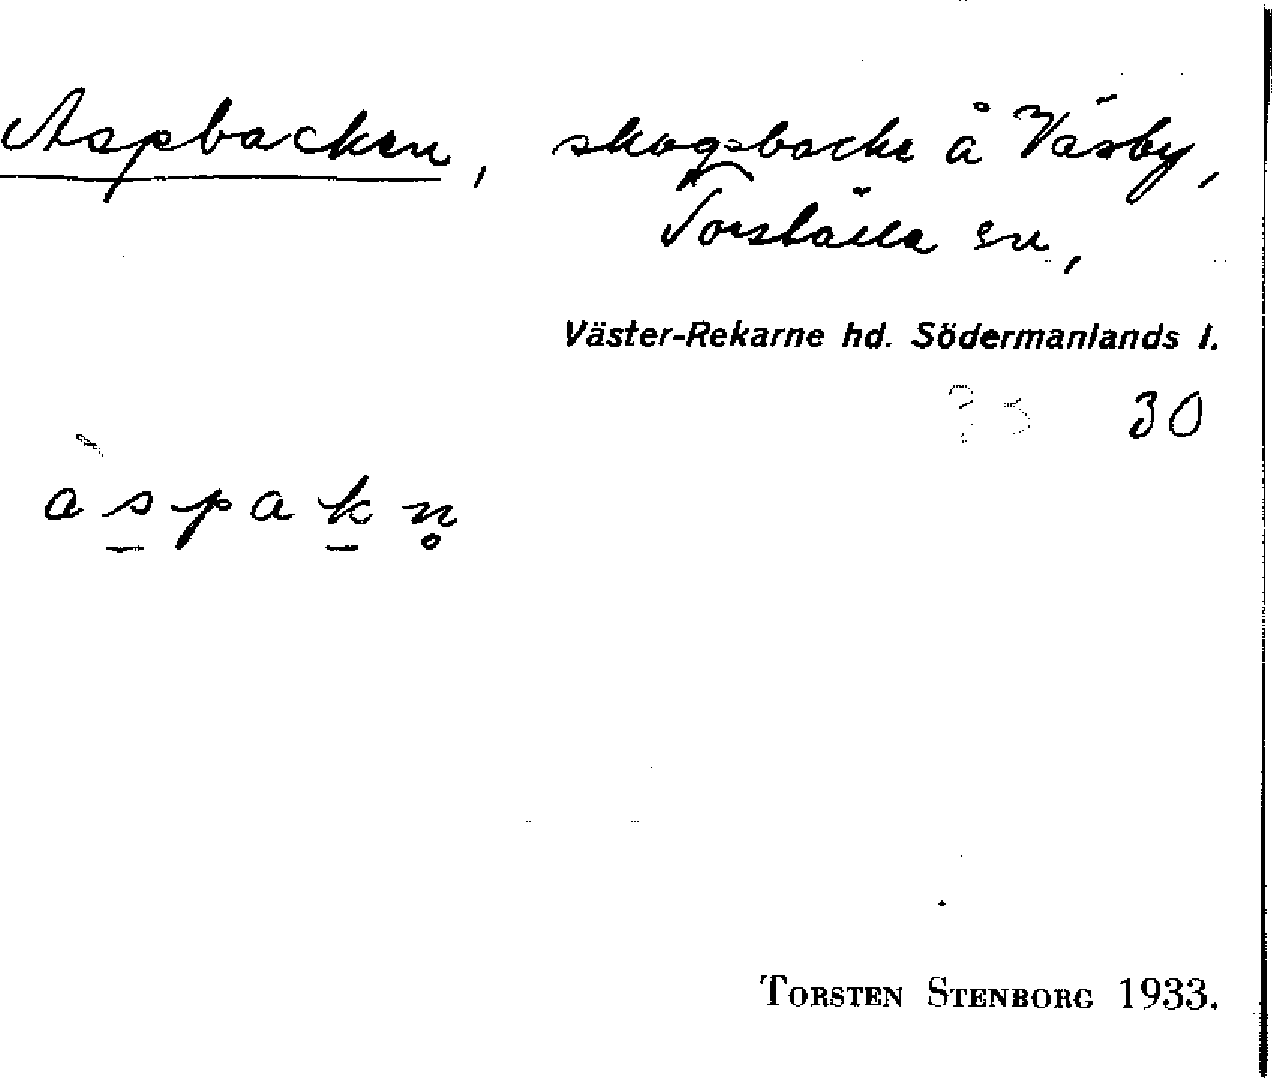 Aspbacken, skogsbacke å Väsby,
Torshälla sn,
Väster-Rekarne hd. Södermanlands l.
30
às̱paḵn̥
TORSTEN STENBORG 1933.